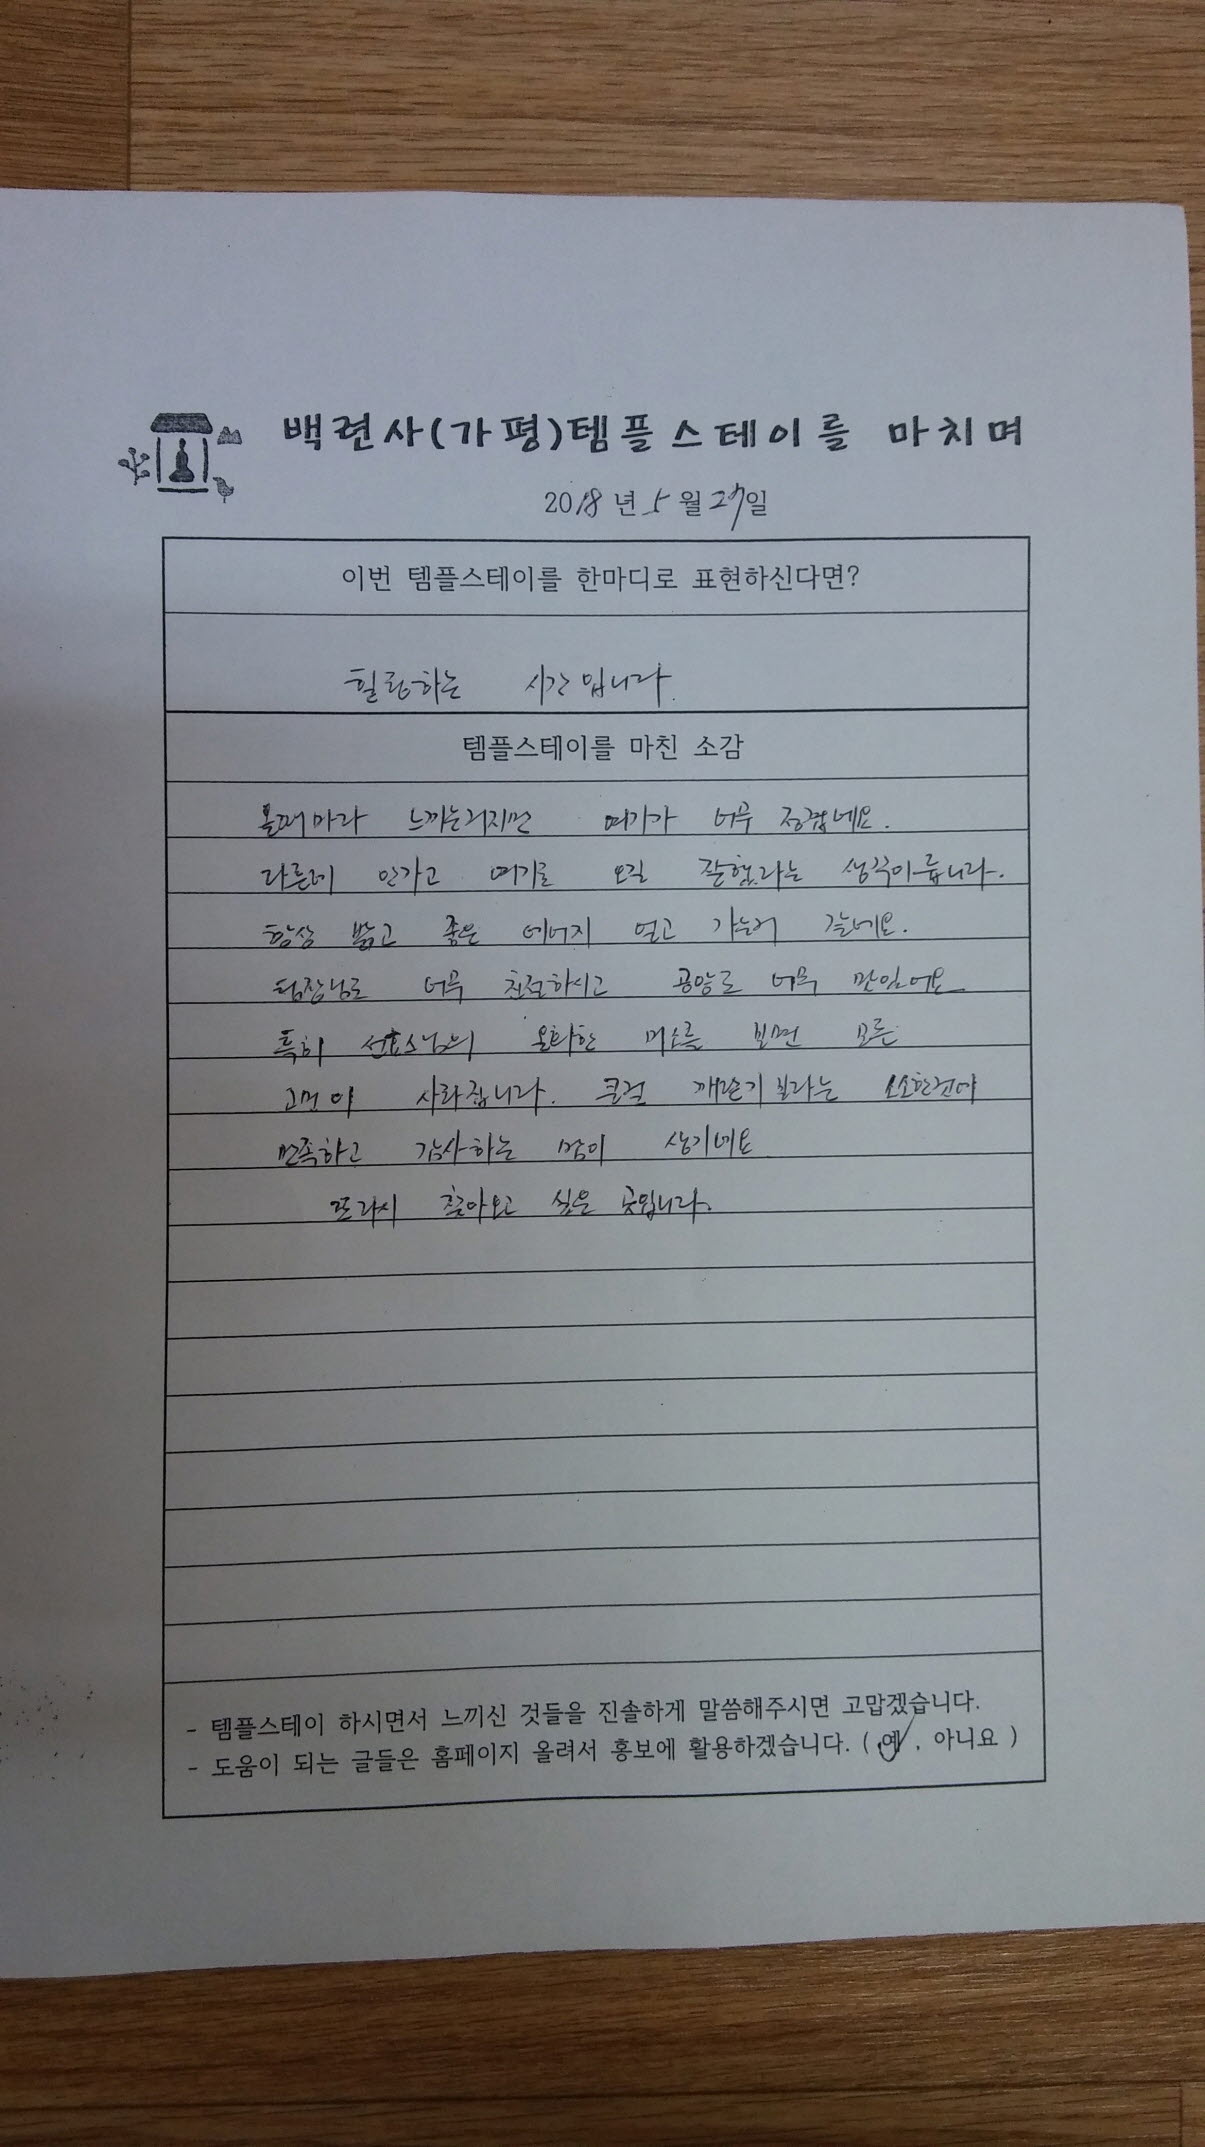 백련사(가평)템플스테이를 마치며
2018년 5월 27일
이번 템플스테이를 한마디로 표현하신다면?
힐링하는 시간입니다.
템플스테이를 마친 소감
올때마다 느끼는거지만 여기가 너무 정겹네요.
다른데 안가고 여기로 오길 잘했다는 생각이듭니다.
항상 밝고 좋은 에너지 얻고 가는거 같네요.
팀장님도 너무 친절하시고 공양도 너무 맛있어요
특히 스님의 온화한 미소를 보면 모든
고민이 사라집니다. 큰걸 깨닫기 보다는 소소한것에
만족하고 감사하는 맘이 생기네요
또다시 찾아오고 싶은 곳입니다.
- 템플스테이 하시면서 느끼신 것들을 진솔하게 말씀해주시면 고맙겠습니다.
- 도움이 되는 글들은 홈페이지 올려서 홍보에 활용하겠습니다. ( 예 , 아니요 )